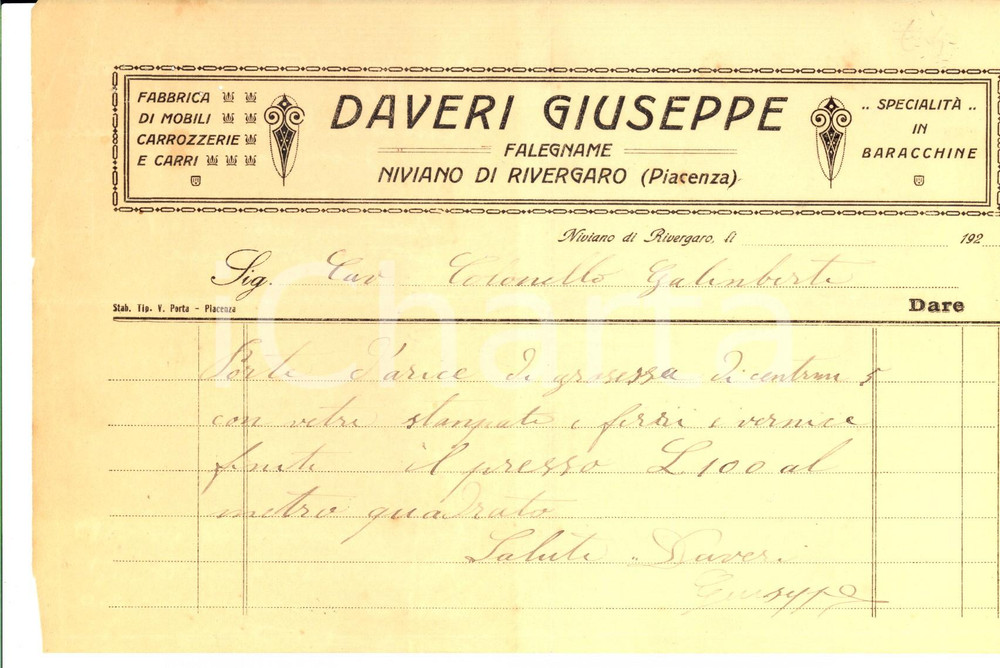 FABBRICA
DI MOBILI
CARROZZERIE
E CARRI
DAVERI GIUSEPPE
FALEGNAME
NIVIANO DI RIVERGARO (Piacenza)
.. SPECIALITÀ ..
IN
BARACCHINE
Niviano di Rivergaro, li 192
Sig. Cav Colonello Galinberte
Stab. Tip. V. Porta - Piacenza
Dare
Porte d'arice di grosessa di centrim 5
con vetri stanpate e ferri e vernice
finite il presso L 100 al
metro quadrato
Salute .. Daveri
Giuseppe
iCharta